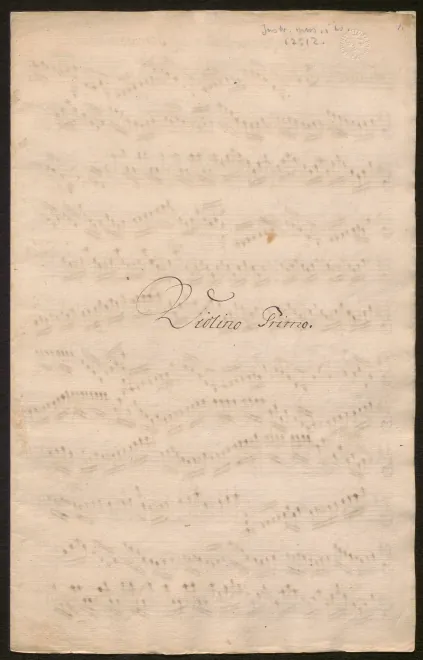 Instr. mus. i hs.
12512.
Violino Primo.